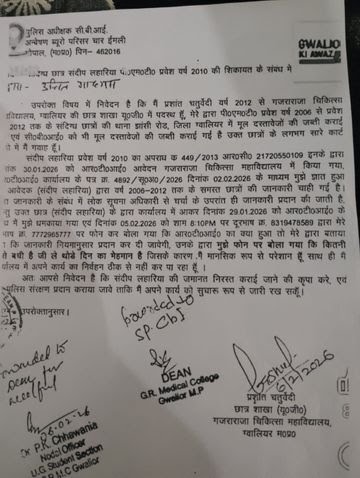 पुलिस अधीक्षक सी.बी.आई.
अन्वेषण ब्यूरो परिसर चार ईमली
भोपाल, (म०प्र०) पिन- 462016
GWALIO
KI AWAZ
छात्र संदीप लहारिया पी०एम०टी० प्रवेश वर्ष 2010 की शिकायत के संबंध में
उपरोक्त विषय में निवेदन है कि मैं प्रशांत चतुर्वेदी वर्ष 2012 से गजराराजा चिकित्सा
महाविद्यालय, ग्वालियर की छात्र शाखा यू०जी० में पदस्थ हूँ, मेरे द्वारा पी०एम०टी० प्रवेश वर्ष 2006 से प्रवेश
2012 तक के संदिग्ध छात्रों की थाना झांसी रोड, जिला ग्वालियर में मूल दस्तावेजों की जब्ती कराई
एवं सी०बी०आई० को भी मूल दस्तावेजों की जब्ती कराई गई है उक्त छात्रों के लगभग सारे कार्ट
में मैं गवाह हूँ।
संदीप लहारिया प्रवेश वर्ष 2010 का अपराध क 449/2013 आर०सी० 21720550109 इनके द्वारा
30.01.2026 को आर०टी०आई० आवेदन गजराराजा चिकित्सा महाविद्यालय में किया गया।
आर०टी०आई० कार्यालय के पत्र क्र. 4892/सू०अ०/2026 दिनांक 02.02.2026 के माध्यम मुझे ज्ञात हुआ
आवेदक (संदीप लहारिया) द्वारा वर्ष 2006-2012 तक के समस्त छात्रों की जानकारी चाही गई है।
जानकारी के संबंध में लोक सूचना अधिकारी से चर्चा के उपरांत ही जानकारी प्रदान की जाती है.
उक्त छात्र (संदीप लहारिया) के द्वारा कार्यालय में आकर दिनांक 29.01.2026 को आर०टी०आई० के
में मुझे धमकाया गया एवं दिनांक 05.02.2026 को शाम 6:10PM पर दूरभाष क्र. 8319478589 द्वारा मेरे
7772965777 पर फोन कर बोला गया कि आर०टी०आई० का क्या हुआ तो मेरे द्वारा बताया
कि जानकारी नियमानुसार प्रदान कर दी जावेगी, उनके द्वारा मुझे फोन पर बोला गया कि कितनी
बची है जी ले थोडे दिन का मेहमान है जिसके कारण मैं मानसिक रूप से परेशान हूँ, साथ ही मैं
कार्यालय में अपने कार्य का निर्वहन ठीक से नहीं कर पा रहा हूँ।
अतः आपसे निवेदन है कि संदीप लहारिया की जमानत निरस्त कराई जाने की कृपा करे, एवं
पुलिस संरक्षण प्रदान कराया जावे ताकि मैं अपने कार्य को सुचारू रूप से जारी रख सकूँ।
उपरोक्तानुसार।
forwarded to
SP CBI
forwarded to
Dean for
needful
DEAN
G.R. Medical College
Gwalior M.P
6/2/2026
प्रशांति चतुर्वेदी
छात्र शाखा (यू०जी०)
गजराराजा चिकित्सा महाविद्यालय,
ग्वालियर म०प्र०
06-02-26
Dr P.K. Chhawania
Nodal Officer
U.G Student Section
G.R.M.C Gwalior